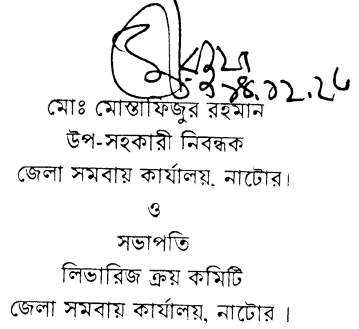 মোঃ মোস্তাফিজুর রহমান
উপ-সহকারী নিবন্ধক
জেলা সমবায় কার্যালয়, নাটোর।
ও
সভাপতি
লিভারিজ ক্রয় কমিটি
জেলা সমবায় কার্যালয়, নাটোর ।